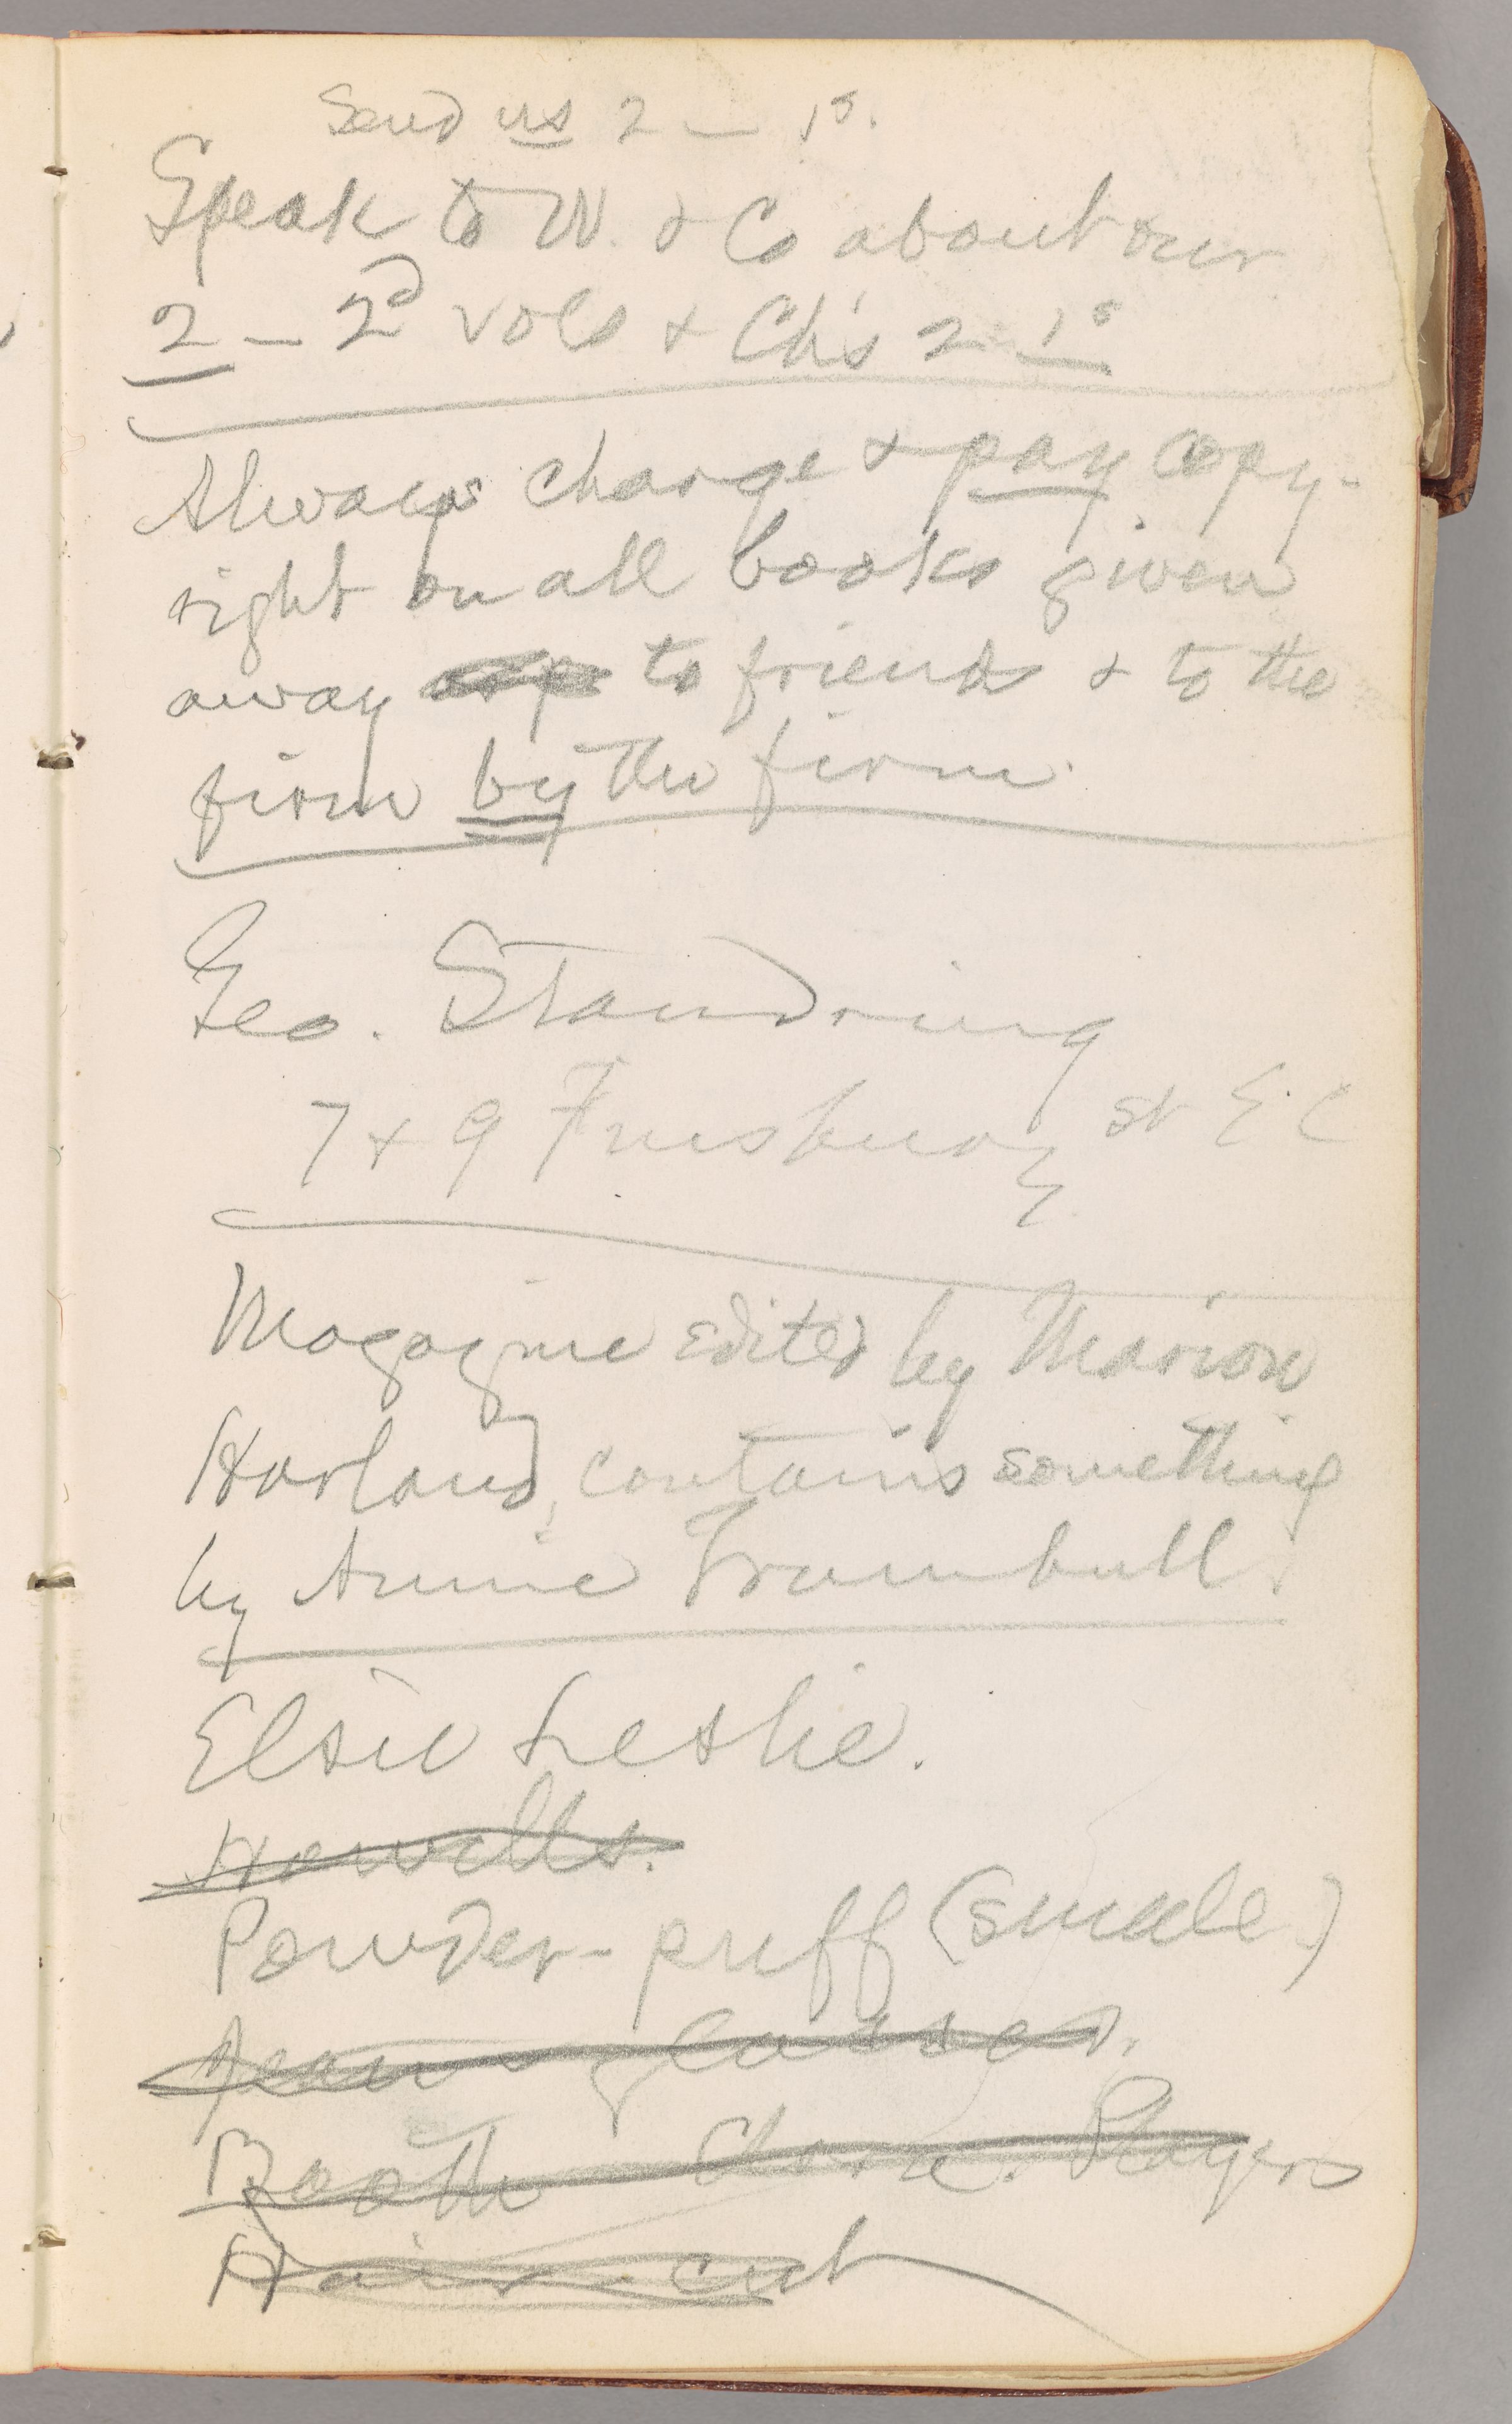 Send us 2 — 1s.
Speak to W. & Co about our
2 — 2d vols & Ch's 2 — 1s
Always charge & pay copy-
right on all books given
away to friends & to the
firm by the firm.
Geo. Standring
7 & 9 Finsbury St E.C
Magazine edited by Marion
Harland, contains something
by Annie Trumbull.
Elsie Leslie.
Howells.
Powder-puff (small)
Jean's glasses.
Booth Players
Hair-cut